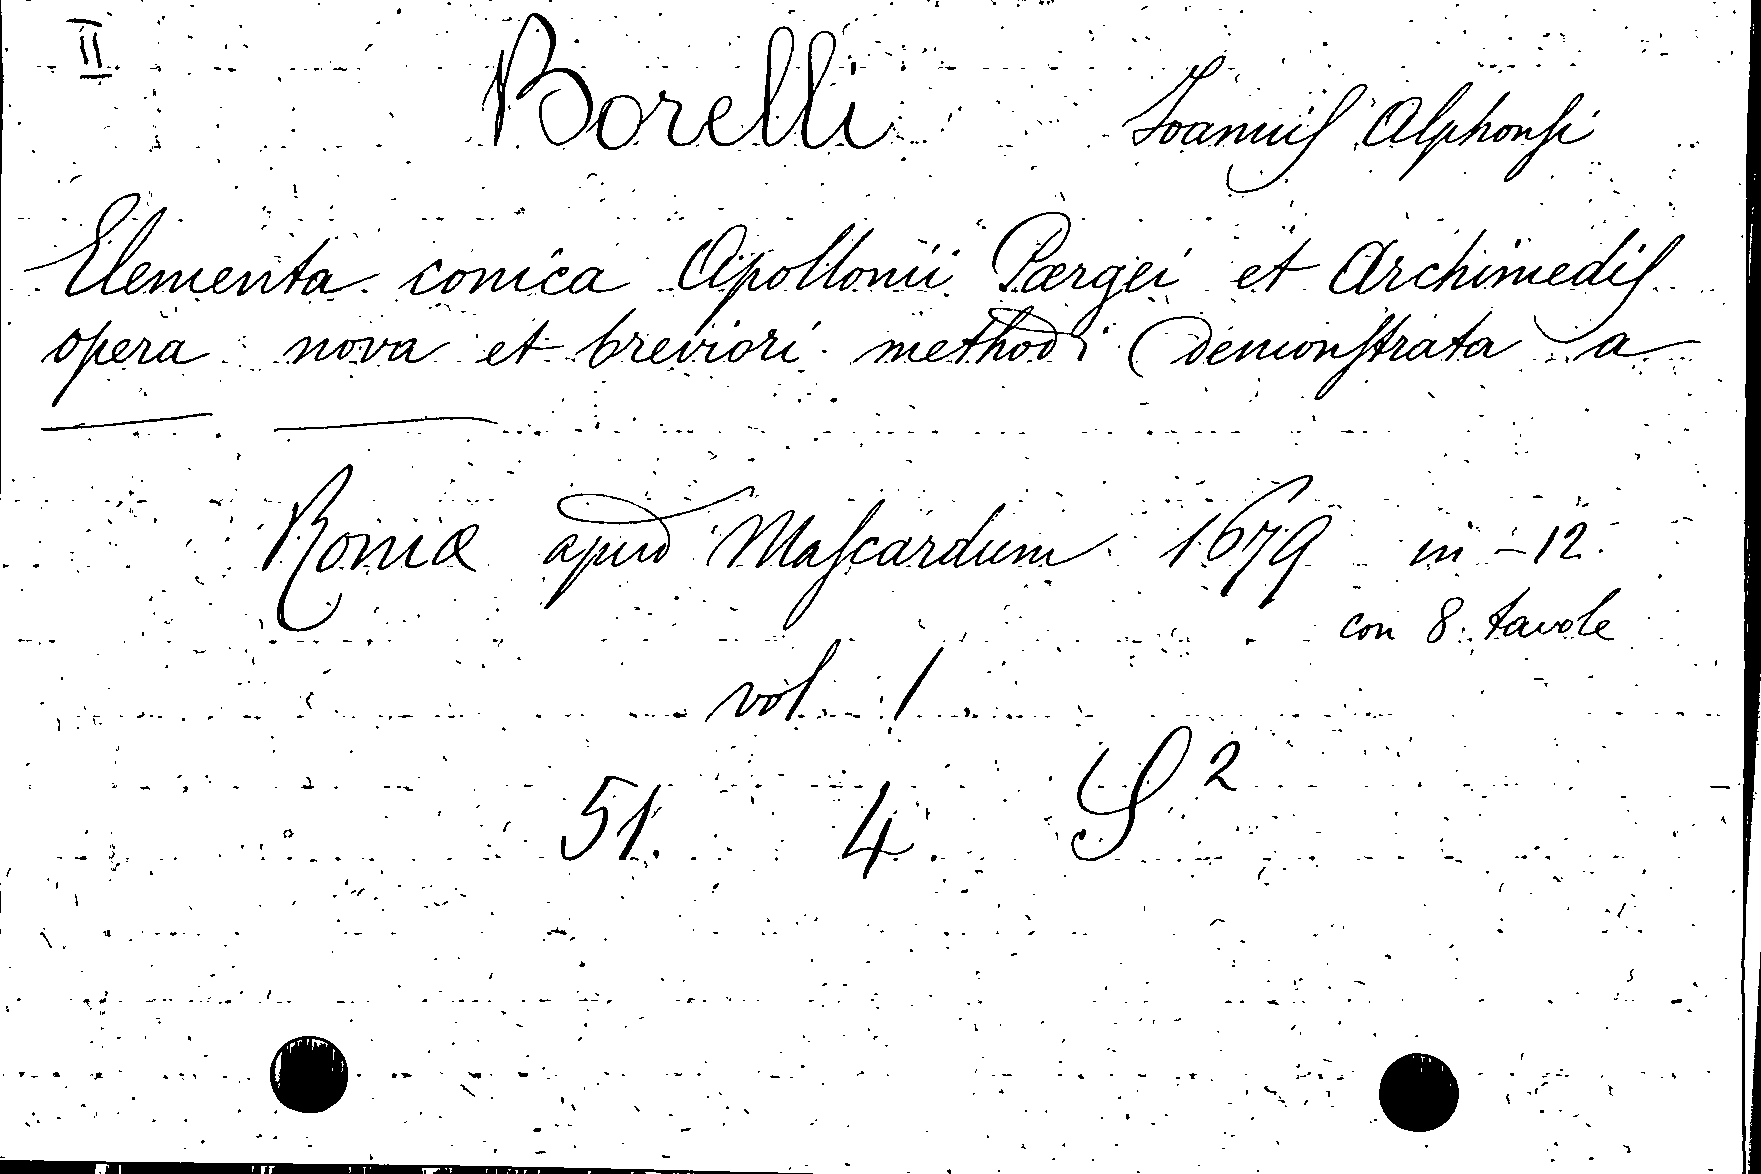 II
Borelli Joannis Alphonsi
Elementa conica Apollonii Pærgei et Archimedis
opera nova et breviori methodi demonstrata a
Romæ apud Mascardum 1679 in-12.
con 8. tavole
vol 1
51. 4. S²